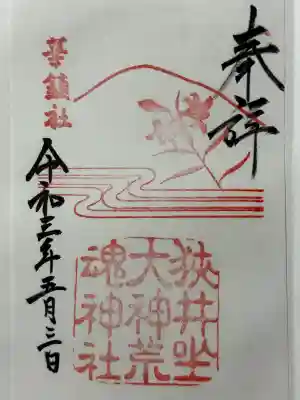 奉拝
華鎮社
狭井坐
大神荒
魂神社
令和三年五月三日